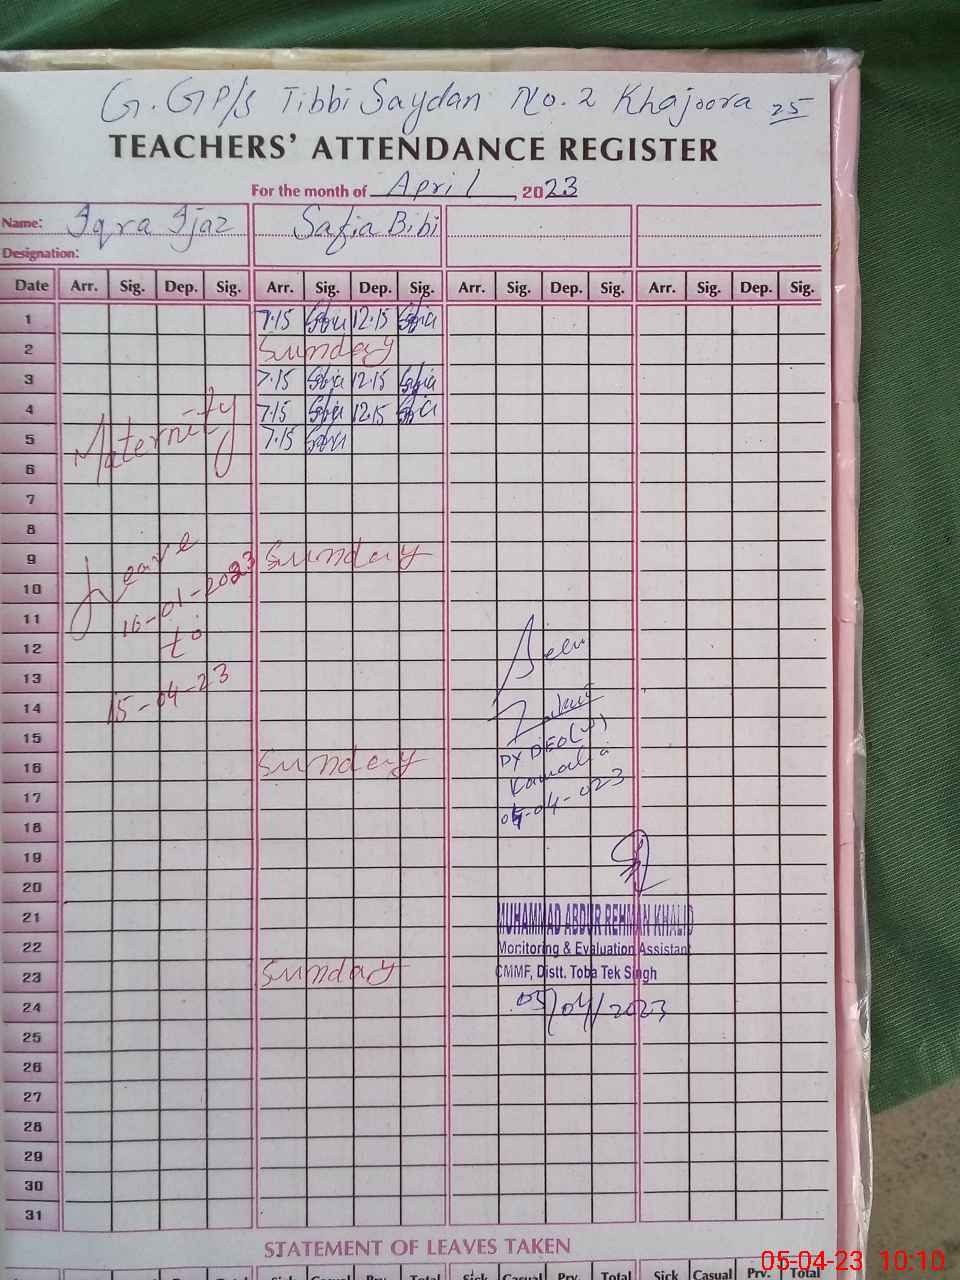 G. GP/S Tibbi Saydan No. 2 Khajoora 25
TEACHERS' ATTENDANCE REGISTER
For the month of April 2023
Name: Iqra Ijaz Safia Bibi
Designation:
Date Arr. Sig. Dep. Sig. Arr. Sig. Dep. Sig. Arr. Sig. Dep. Sig. Arr. Sig. Dep. Sig.
1 7.15 Safia 12.15 Safia
2 Sunday
3 7.15 Safia 12.15 Safia
4 7.15 Safia 12.15 Safia
5 7.15 Safia
Maternity
6
7
8
9 Sunday
Leave
10
16-01-2023
11
12 to
13
14 15-04-23
15 DY DEO(W)
16 Sunday
Kamalia
17
18 05-04-023
19
20
21 MUHAMMAD ABDUR REHMAN KHALID
22 Monitoring & Evaluation Assistant
23 Sunday CMMF, Distt. Toba Tek Singh
24 05/04/2023
25
26
27
28
29
30
31
STATEMENT OF LEAVES TAKEN
Sick Casual Prv. Total Sick Casual Prv. Total Sick Casual Prv. Total
05-04-23 10:10